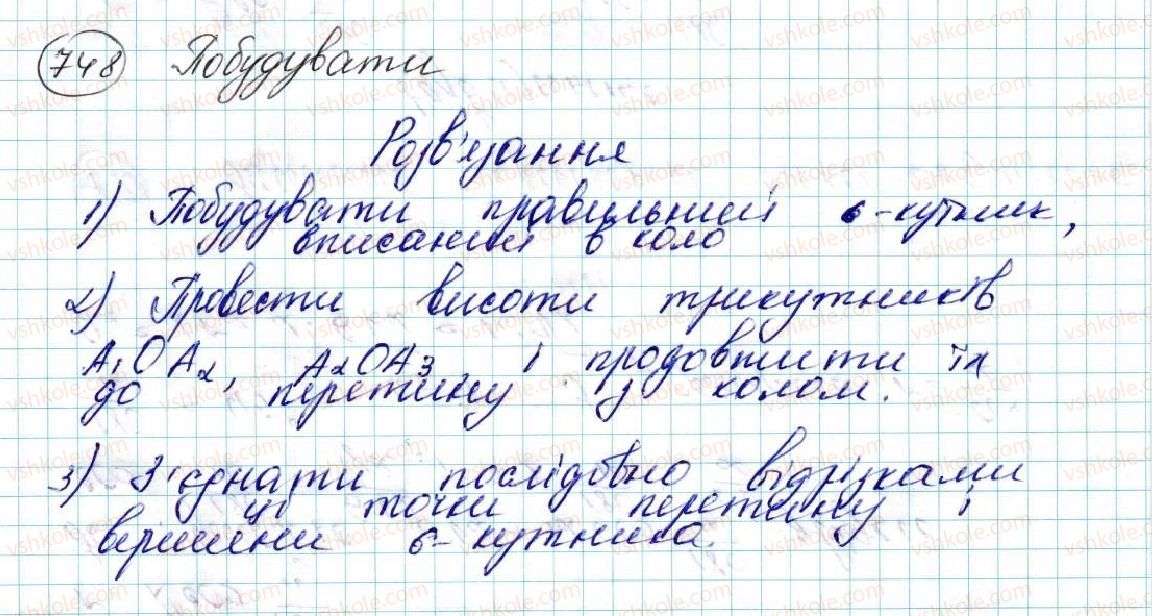 748 Побудувати
Розв'язання
1) Побудувати правильний 6-кутник,
вписаний в коло
2) Провести висоти трикутників
A₁OA₂, A₂OA₃ і продовжити їх
до перетину з колом.
3) З'єднати послідовно відрізками
ці точки перетину і
вершини 6-кутника.